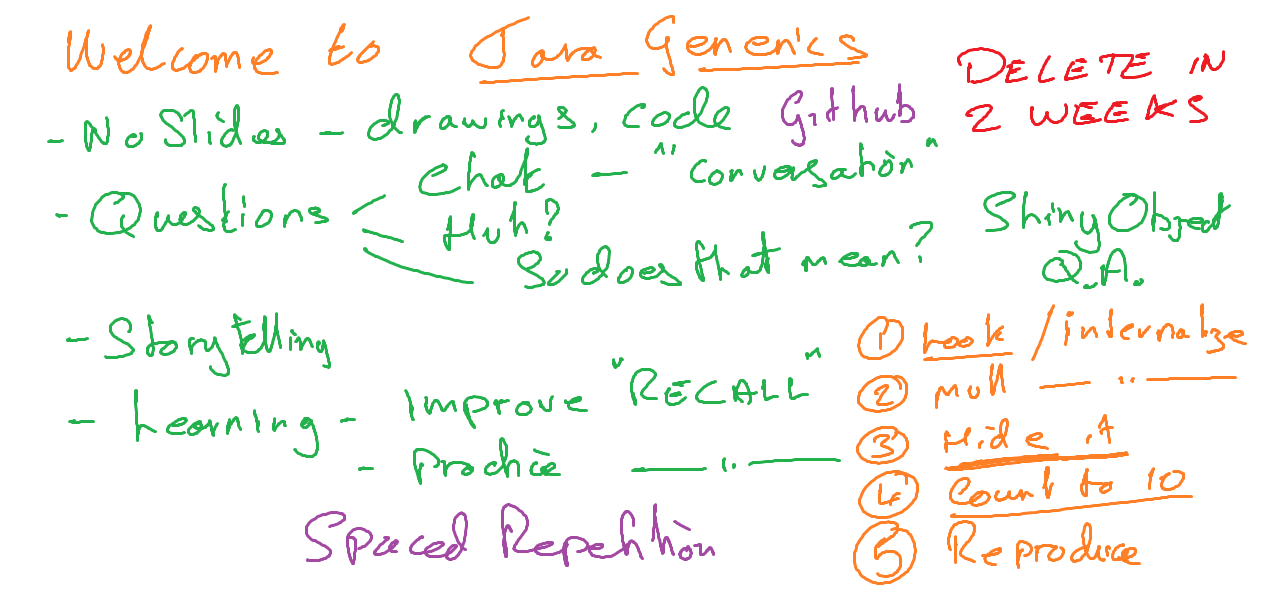 Welcome to Java Generics
DELETE IN
2 WEEKS
- No Slides - drawings, code Github
- Questions
Chat - "Conversation"
Huh?
So does that mean?
Shiny Object
Q.A.
- Storytelling
- Learning - Improve "RECALL"
- Practice —— " ——
Spaced Repetition
① Look / internalize
② mull —— " ——
③ Hide it
④ Count to 10
⑤ Reproduce